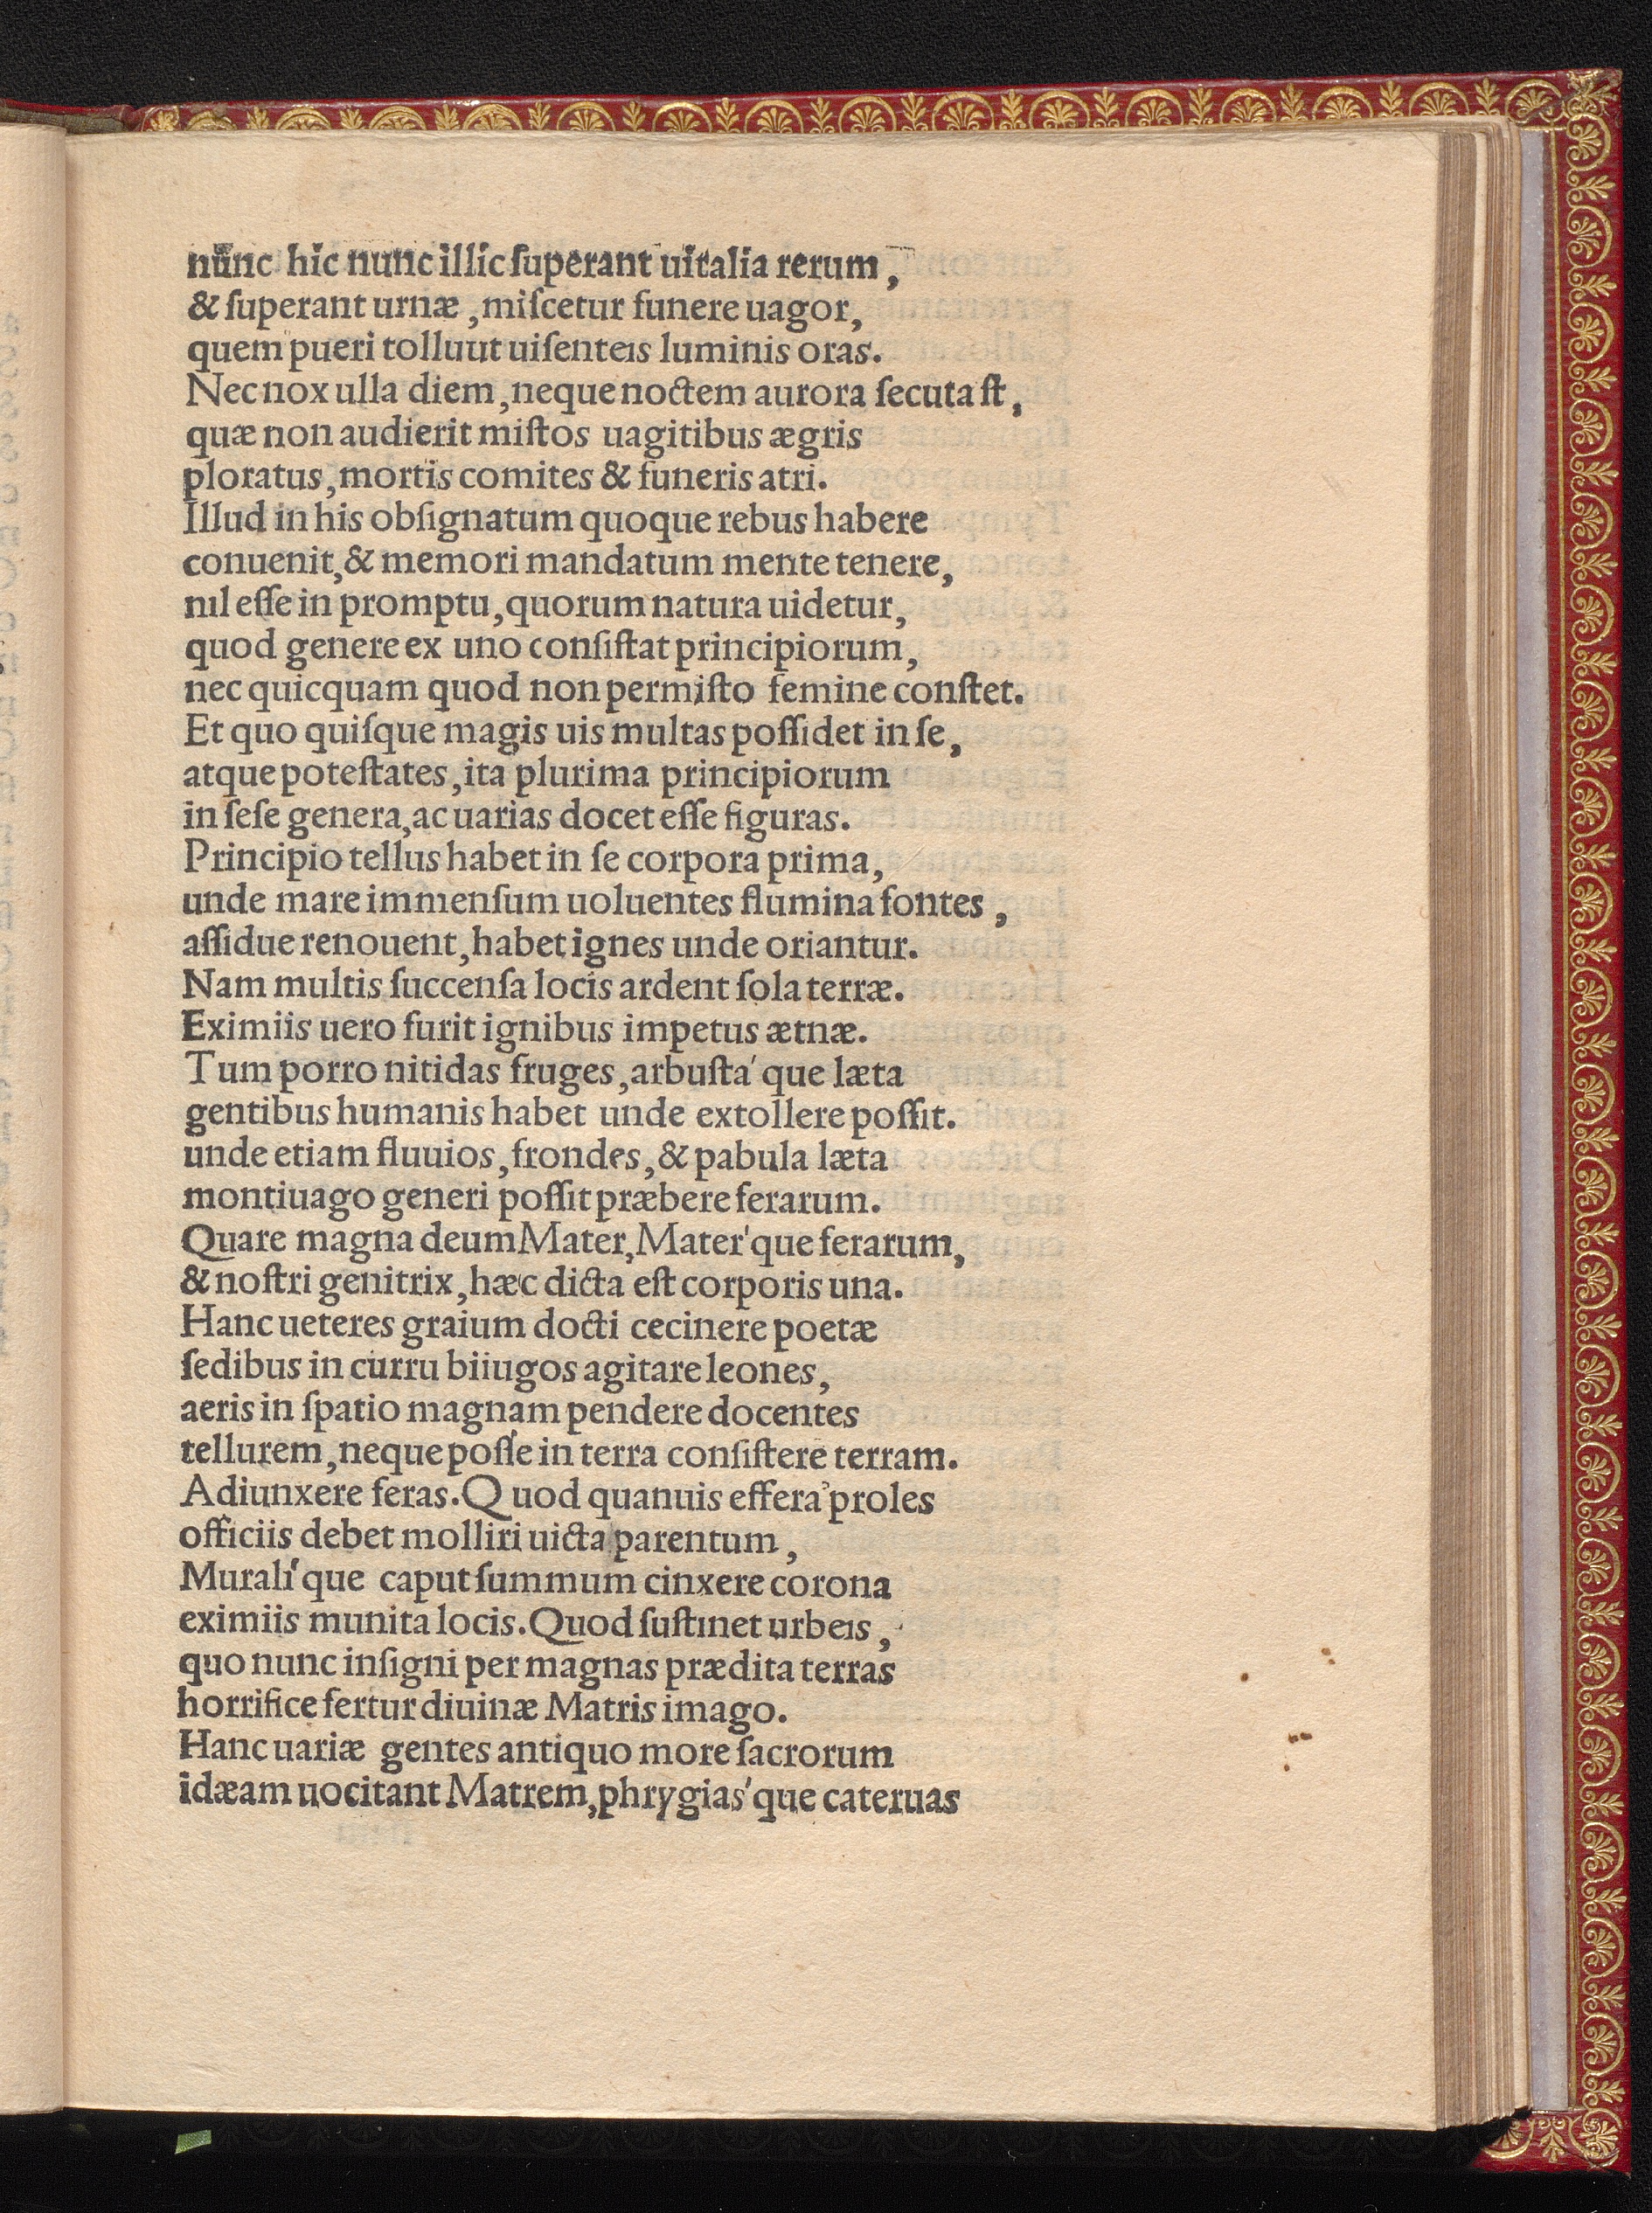 nunc hic nunc illic ſuperant uitalia rerum,
& ſuperant urnæ, miſcetur funere uagor,
quem pueri tolluut uiſenteis luminis oras.
Nec nox ulla diem, neque noctem aurora ſecuta ſt,
quæ non audierit miſtos uagitibus ægris
ploratus, mortis comites & funeris atri.
Illud in his obſignatum quoque rebus habere
conuenit, & memori mandatum mente tenere,
nil eſſe in promptu, quorum natura uidetur,
quod genere ex uno conſiſtat principiorum,
nec quicquam quod non permiſto femine conſtet.
Et quo quiſque magis uis multas poſſidet in ſe,
atque poteſtates, ita plurima principiorum
in ſeſe genera, ac uarias docet eſſe figuras.
Principio tellus habet in ſe corpora prima,
unde mare immenſum uoluentes flumina fontes,
aſſidue renouent, habet ignes unde oriantur.
Nam multis ſuccenſa locis ardent ſola terræ.
Eximiis uero furit ignibus impetus ætnæ.
Tum porro nitidas fruges, arbuſta' que læta
gentibus humanis habet unde extollere poſſit.
unde etiam fluuios, frondes, & pabula læta
montiuago generi poſſit præbere ferarum.
Quare magna deum Mater, Mater' que ferarum,
& noſtri genitrix, hæc dicta eſt corporis una.
Hanc ueteres graium docti cecinere poetæ
ſedibus in curru biiugos agitare leones,
aeris in ſpatio magnam pendere docentes
tellurem, neque poſſe in terra conſiſtere terram.
Adiunxere feras. Quod quanuis effera proles
officiis debet molliri uicta parentum,
Murali' que caput ſummum cinxere corona
eximiis munita locis. Quod ſuſtinet urbeis,
quo nunc inſigni per magnas prædita terras
horrifice fertur diuinæ Matris imago.
Hanc uariæ gentes antiquo more ſacrorum
idæam uocitant Matrem, phrygias' que cateruas